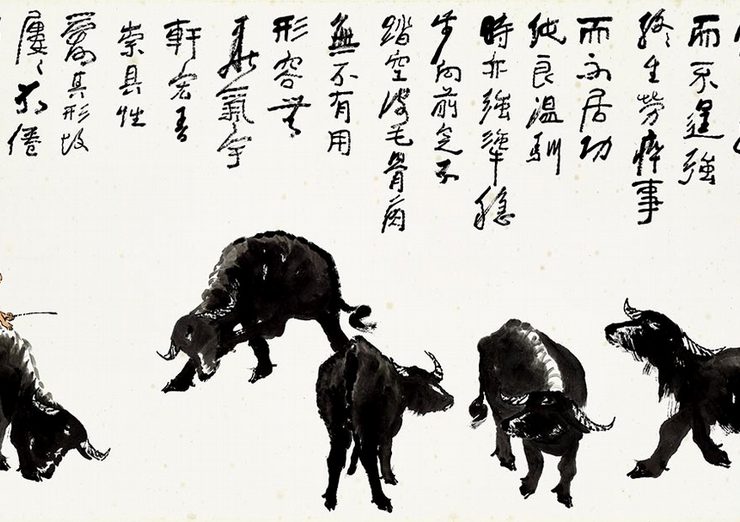 而不逞強
終生勞瘁事
而不居功
純良溫馴
時亦強犟穩
步向前足不
踏空皮毛骨角
無不有用
形容無
華氣宇
軒宏吾
崇其性
愛其形故
屢々不倦